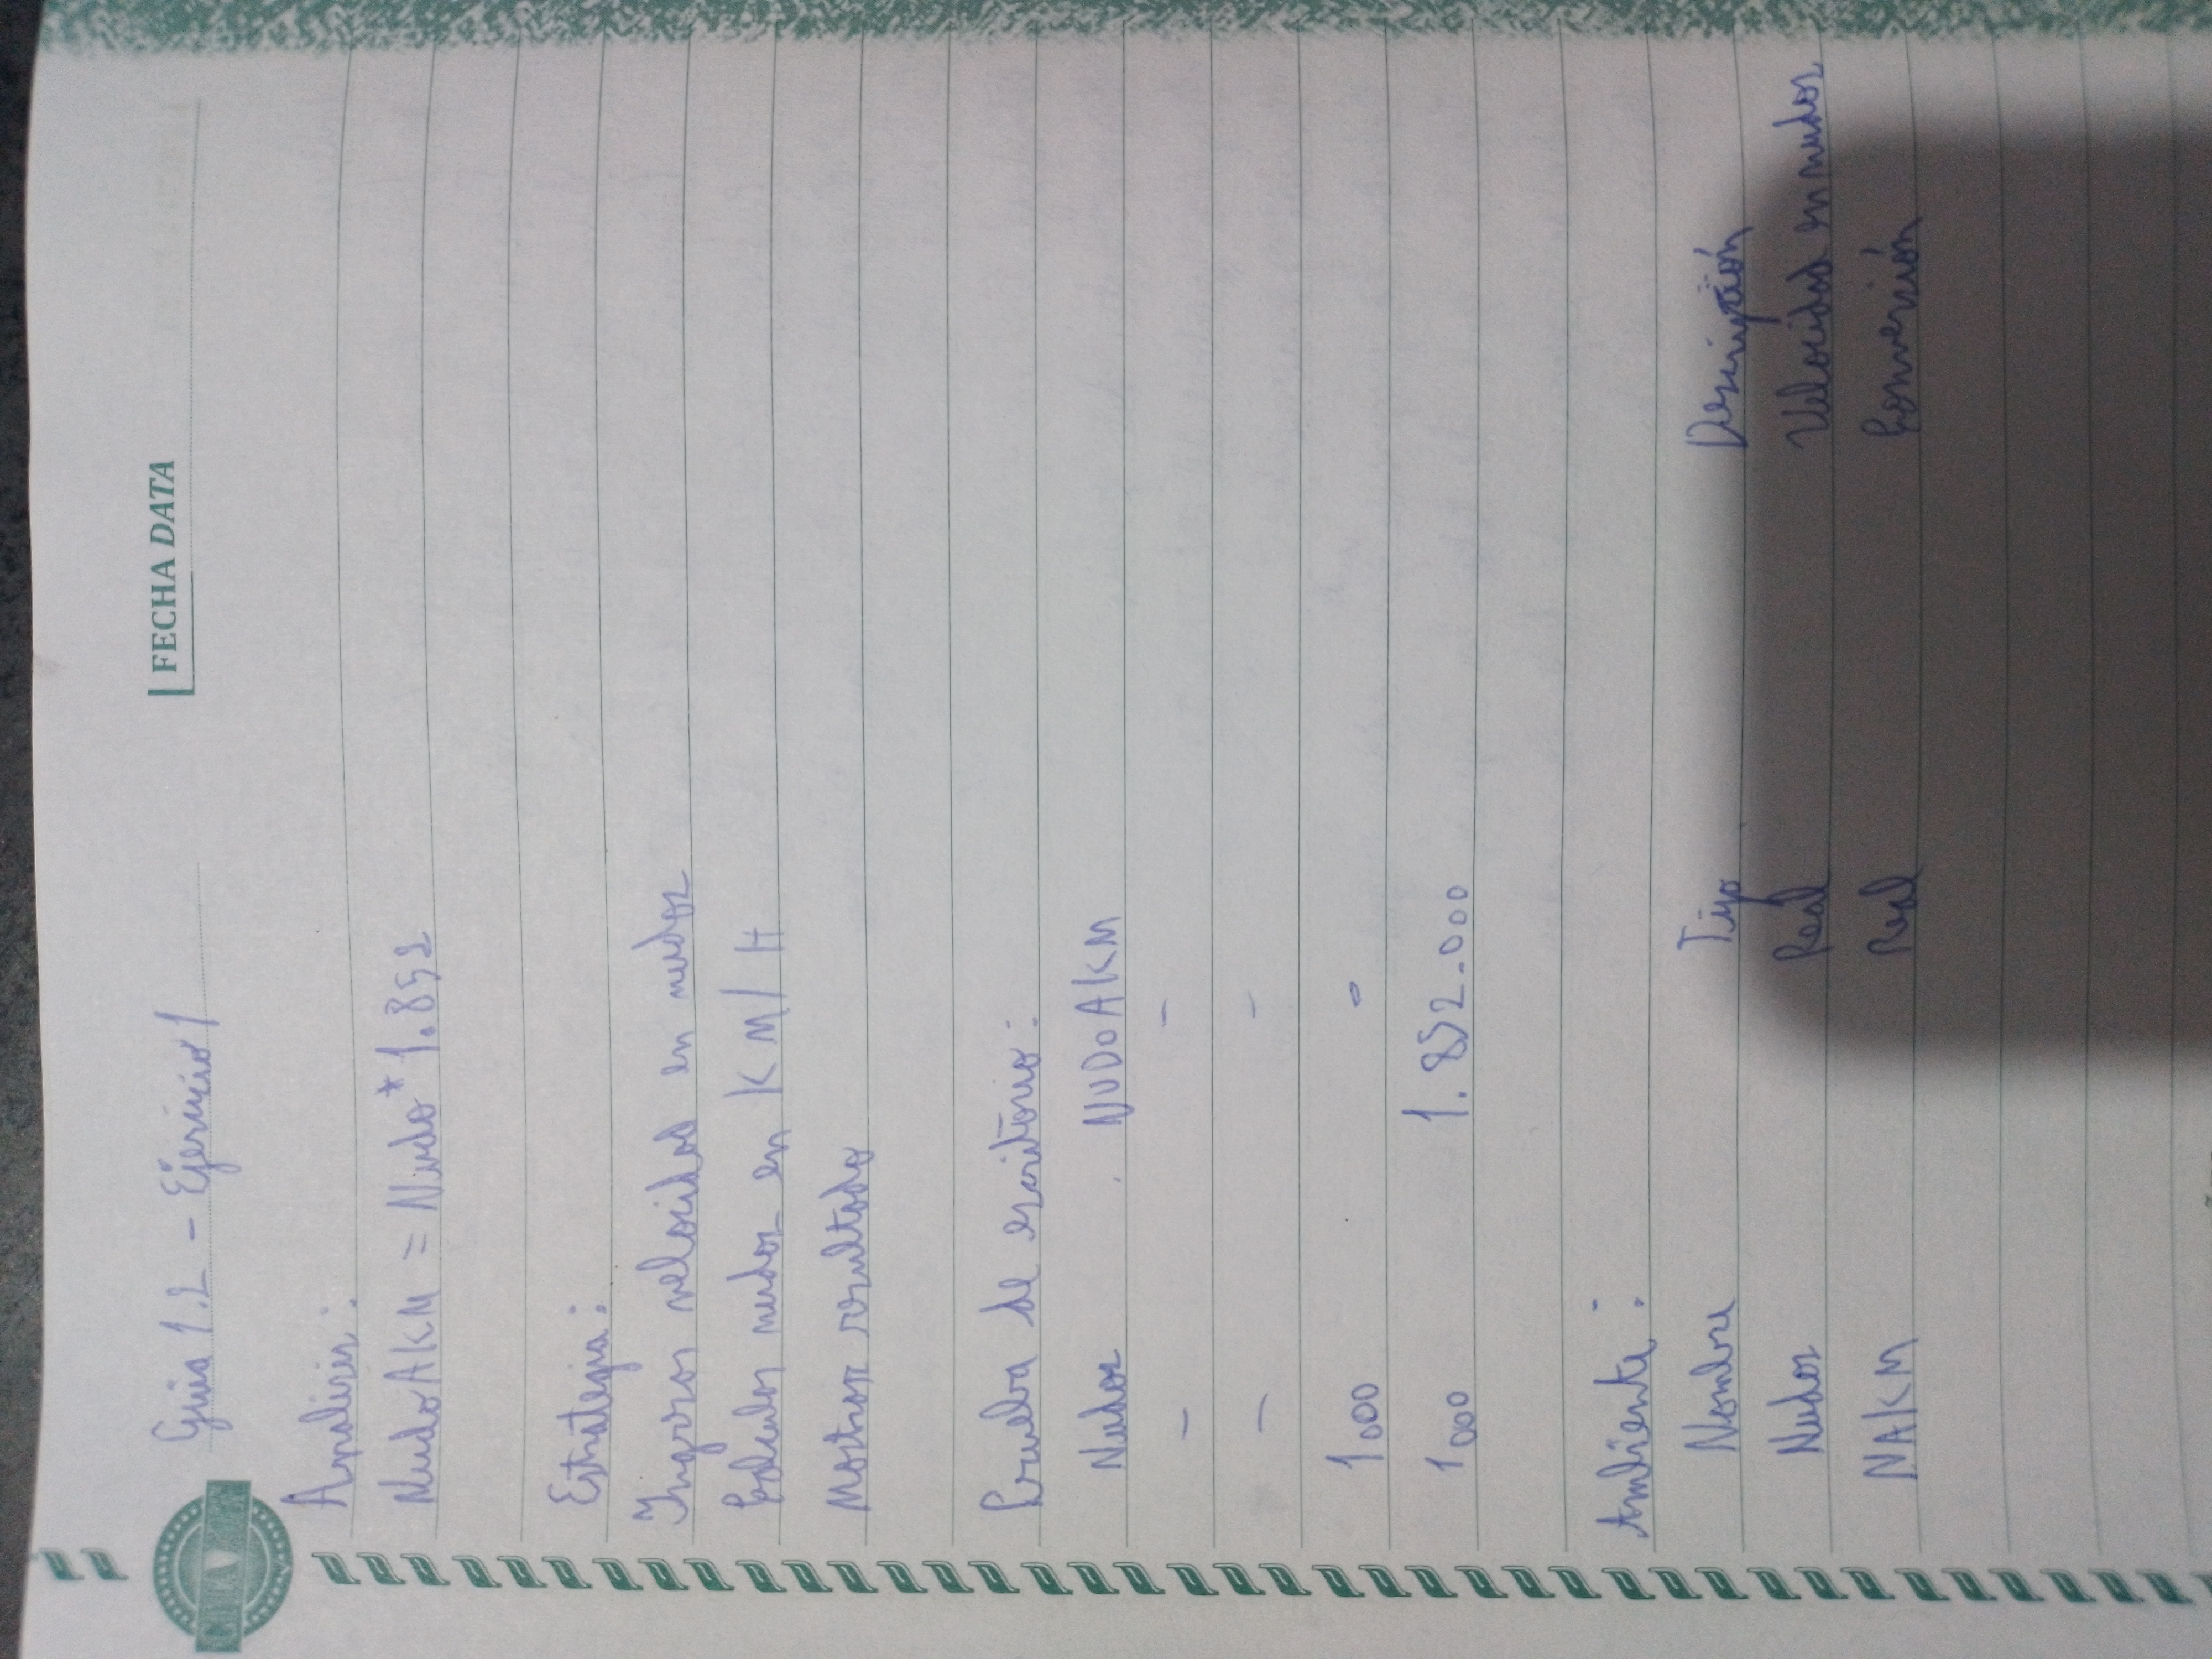 Guia 1.2 - Ejercicio 1
FECHA DATA
Analisis:
NudoAKM = Nudo * 1.852
Estrategia:
Ingresar velocidad en nudos
Calcular nudos en KM/H
Mostrar resultado
Prueba de escritorio:
Nudos NUDOAKM
- -
- -
1000 -
1000 1.852.000
Ambiente:
Nombre Tipo Descripción
Nudos Real Velocidad en nudos
NAKM Real Conversión